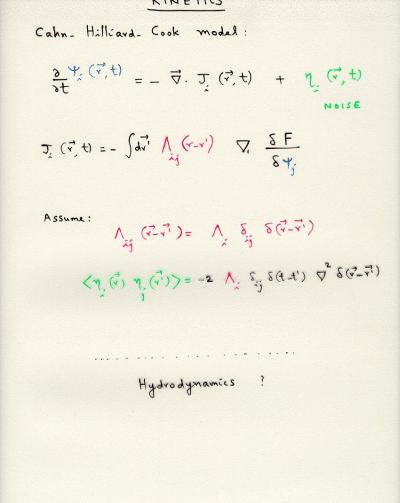 KINETICS
Cahn-Hilliard-Cook model:
∂/∂t ψ_i (r⃗, t) = - ∇⃗. J_i (r⃗, t) + η_i (r⃗, t)
NOISE
J_i (r⃗, t) = - ∫dr⃗' Λ_ij (r-r') ∇ δF/δψ_j
Assume:
Λ_ij (r⃗-r⃗') = Λ_i δ_ij δ(r⃗-r⃗')
<η_i (r⃗) η_j (r⃗')> = -2 Λ_i δ_ij δ(t-t') ∇² δ(r⃗-r⃗')
Hydrodynamics ?